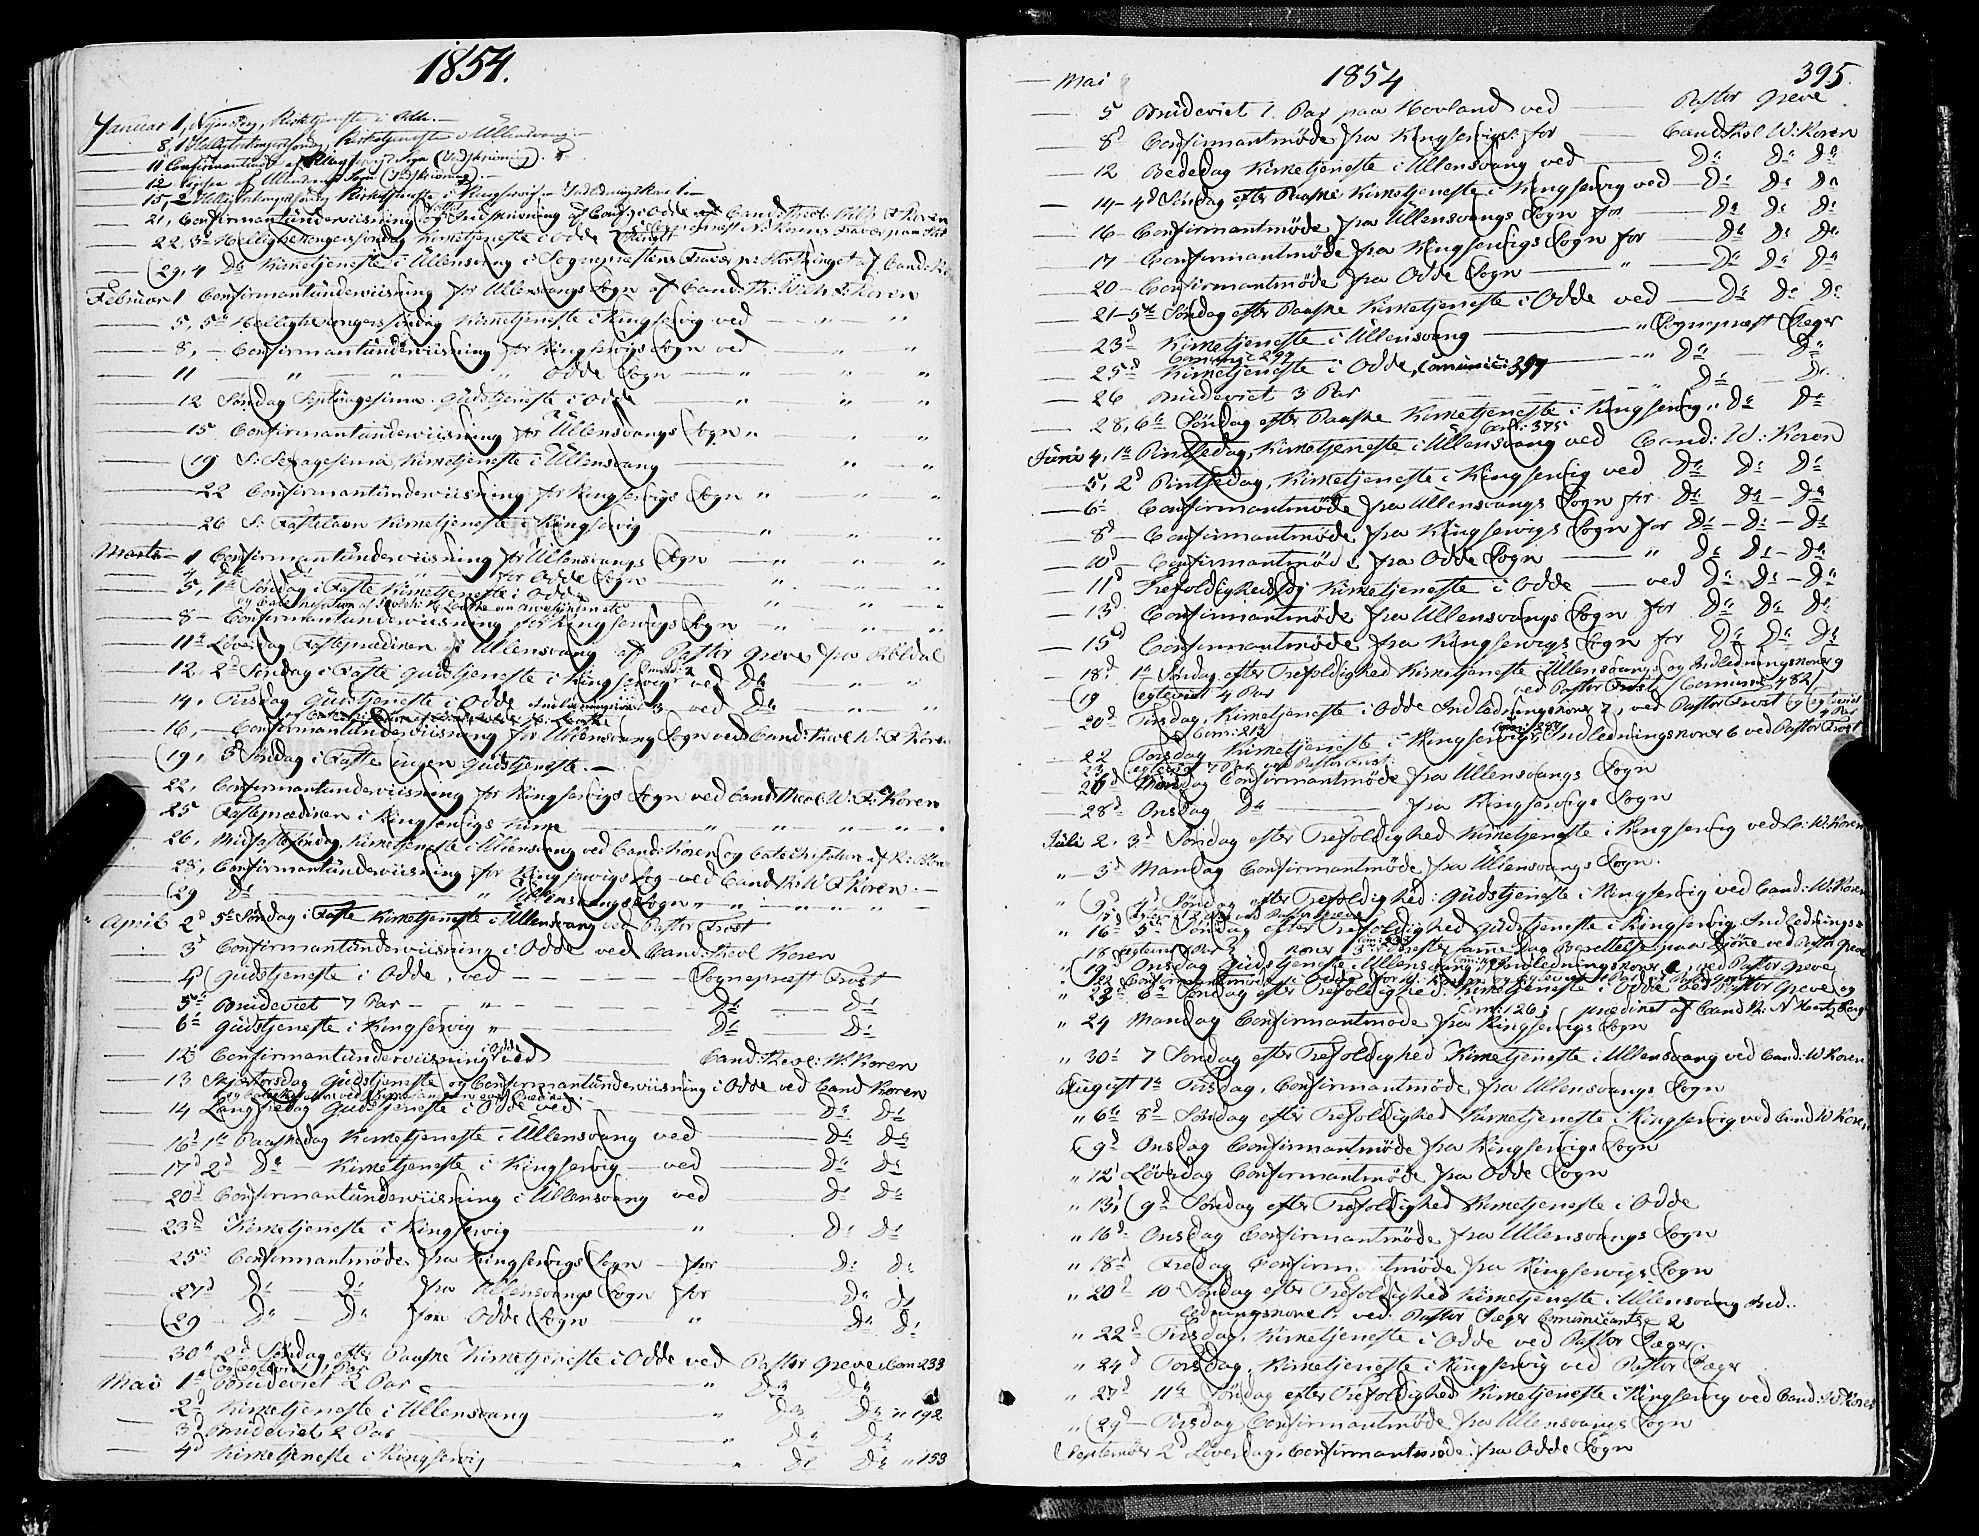 1854.
Januar 1, Nytaarsdag, Kirketjeneste i Odde.
8, 1 Helligtrekongerssöndag, Kirketjeneste i Ullensvang.
11 Confirmantunder af Kingservigs Sogn (Indskrivning).
12 af Ullensvangs Sogn (Indskrivning)
15, 2 Helligtrekongerssöndag Kirketjeneste i Kingservig. Indledningskone 1.
21, Confirmantunderviisning og Indskrivning af Conf: i Odde af Cand: theol: Wilh F Koren
22, 3die Helligtrekongerssöndag Kirketjeneste i Odde
29, 4 Do Kirketjeneste i Ullensvang i Sognepræstens Fravær p: Storthinget af Cand: K
Februar 1 Confirmantunderviisning for Ullensvangs Sogn af Cand: th: Wilh F. Koren
5, 5te Helligtrekongerssöndag Kirketjeneste i Kingservig ved " "
8, - Confirmantunderviisning for Kingservigs Sogn ved " "
11 " " " Odde Sogn " " "
12 Söndag Septuagesima Gudstjeneste i Odde " " "
15 Confirmantunderviisning for Ullensvangs Sogn " " "
19 S: Sexagesima, Kirketjeneste i Ullensvang " "
22 Confirmantunderviisning for Kingservigs Sogn " " "
26 S: Fastelavn Kirketjeneste i Kingservig " " "
Marts 1 Confirmantunderviisning for Ullensvangs Sogn " " "
4 for Odde Sogn " " "
5, 1ste Söndag i Faste Kirketjeneste i Odde " " "
8 - Confirmantunderviisning for Kingservigs Sogn " " "
11te Löverdag Fasteprædiken i Ullensvang af Pastor Greve fra Röldal
12, 2d Söndag i Faste Gudstjeneste i Kingservig ved Do " "
14, Tirsdag Gudstjeneste i Odde 3 ved Do " "
16, - Confirmantunderviisning for Ullensvang Sogn ved Cand: theol W: F Koren
19, 3 Söndag i Faste ingen Gudstjeneste.
22, Confirmantunderviisning for Kingservigs Sogn ved Cand: theol: W: F: Koren
25 Fasteprædiken i Kingservigs Kirke " " " "
26, Midfastesöndag, Kirketjeneste i Ullensvang ved Cand: Koren og Catechisation af K:
28, Confirmantunderviisning for Kingservigs Sog ved Cand th: W F Koren.
29 Do " Ullensvangs Sogn " " " "
April 2d 5te Söndag i Faste Kirketjeneste i Ullensvang ved Pastor Frost
3d Confirmantunderviisning i Odde ved Cand: theol Koren
4 Gudstjeneste i Odde, ved Sognepræst Frost
5te Brudeviet 7 Par " Do Do
6te Gudstjeneste i Kingservig " Do Do
12 Confirmantunderviisning i Odde ved Cand: theol: W: Koren
13 Skjærtorsdag Gudstjeneste og Confirmantunderviisning i Odde ved Cand Koren
14 Langfredag Gudstjeneste i Odde ved Do Do
16d 1ste Paaskedag Kirketjeneste i Ullensvang ved Do Do
17d 2d Do Kirketjeneste i Kingservig ved Do Do
20d Confirmantunderviisning i Ullensvang ved Do Do
23d Kirketjeneste i Kingservig " Do Do
25d Confirmantmöde fra Kingservigs Sogn for Do Do
27d Do Do fra Ullensvangs Sogn for Do Do
29 Do Do fra Odde Sogn " Do Do
30te 2d Söndag efter Paaske Kirketjeneste i Odde ved Pastor Greve Com 233
Mai 1ste Brudeviet 2 Par " Do Do
2d Kirketjeneste i Ullensvang " Do Do " 192
3d Brudeviet 2 Par " Do Do
4d Kirketjeneste i Kingservig " Do Do " 153
Mai 1854 395.
5 Brudeviet 1. Par paa Hovland ved Pastor Greve
8d Confirmantmöde fra Kingservigs for Cand: theol W: Koren
12 Bededag Kirketjeneste i Ullensvang ved Do Do Do
14 - 4d Söndag efter Paaske Kirketjeneste i Kingservig ved Do Do Do
16 - Confirmantmöde fra Ullensvangs Sogn for Do Do Do
17 Confirmantmöde fra Kingservigs Sogn for Do Do Do
20 - Confirmantmöde fra Odde Sogn " Do Do Do
21 - 5te Söndag efter Paaske Kirketjeneste i Odde ved Do Do Do
23d Kirketjeneste i Ullensvang " Sognepræst Jæger
Comuni: 299
25d Kirketjeneste i Odde, Comunic: 397 " Do Do
26 Brudeviet 3 Par " Do Do
28, 6te Söndag efter Paaske Kirketjeneste i Kingservig " Do Do
Com: 375
Juni 4, 1ste Pintsedag, Kirketjeneste i Ullensvang ved Cand: W: Koren
5, 2d Pintsedag, Kirketjeneste i Kingservig ved Do Do Do
6te Confirmantmöde fra Ullensvangs Sogn for Do Do Do
8d - Confirmantmöde fra Kingservigs Sogn for Do Do Do
10d - Confirmantmöde fra Odde Sogn " Do Do Do
11d Trefoldighedsdg Kirketjeneste i Odde ved Do Do Do
13d Confirmantmöde fra Ullensvangs Sogn for Do Do Do
15d Confirmantmöde fra Kingservigs Sogn for Do Do Do
18d 1ste Söndag efter Trefoldighed Kirketjeneste i Ullensvang og Indledningskoner 9
19 egteviet 4 Par ved Pastor Frost / Comunic 482 /
20d Tirsdag, Kirketjeneste i Odde Indledningskoner 7, ved Pastor Frost
Com: 213
22 Torsdag Kirketjeneste i Kingservig, Indledningskoner 6 ved Pastor Frost
23 egteviet 7 Par ved Pastor Frost.
26d Mandag Confirmantmöde fra Ullensvangs Sogn
28d Onsdag Do fra Kingservigs Sogn
Juli 2, 3d Söndag efter Trefoldighed Kirketjeneste i Kingservig ved C: W: Koren
" 3d Mandag Confirmantmöde fra Ullensvangs Sogn.
" 9d 4d Söndag efter Trefoldighed: Gudstjeneste i Kingservig ved Cand: W: Koren
" 16d 5te Söndag efter Trefoldighed Gudstjeneste i Kingservig Indlednings=
18 egteviet Par koner 3 samme Dag Berettelse paa Djönne ved Pastor Greve
" 19 Onsdag Gudstjeneste i Ullensvang, Indledningskoner, ved Pastor Greve
" 23d 6te Söndag efter Trefoldighed. Kirketjeneste i Odde ved Pastor Greve og
Com: 126 ; prædiket af Cand th: N Hertzberg
" 24 Mandag Confirmantmöde fra Kingservigs Sogn
" 30te 7 Söndag efter Trefoldighed Kirketjeneste i Ullensvang ved Cand: W Koren
August 1ste Tirsdag, Confirmantmöde fra Ullensvangs Sogn
" 6te 8d Söndag efter Trefoldighed Kirketjeneste i Kingservig ved Cand W Koren
" 9d Onsdag Confirmantmöde fra Kingservigs Sogn
" 12te Löverdag Confirmantmöde fra Odde Sogn
" 13d, 9d Söndag efter Trefoldighed Kirketjeneste i Odde
" 16d Onsdag Confirmantmöde fra Ullensvangs Sogn
" 18d Fredag Confirmantmöde fra Kingservigs Sogn
" 20d 10 Söndag efter Trefoldighed Kirketjeneste i Ullensvang Ind=
ledningskone 1. ved Pastor Jæger Comunicanter 2
" 22d Tirsdag, Kirketjeneste i Odde ved Pastor Jæger
" 24d Torsdag, Kirketjeneste i Kingservig ved Pastor Jæger
" 27d 11te Söndag efter Trefoldighed Kirketjeneste i Kingservig ved Cand: W Koren
" 29d Tirsdag Confirmantmöde fra Ullensvangs Sogn
September 2d Löverdag, Confirmantmöde fra Odde Sogn